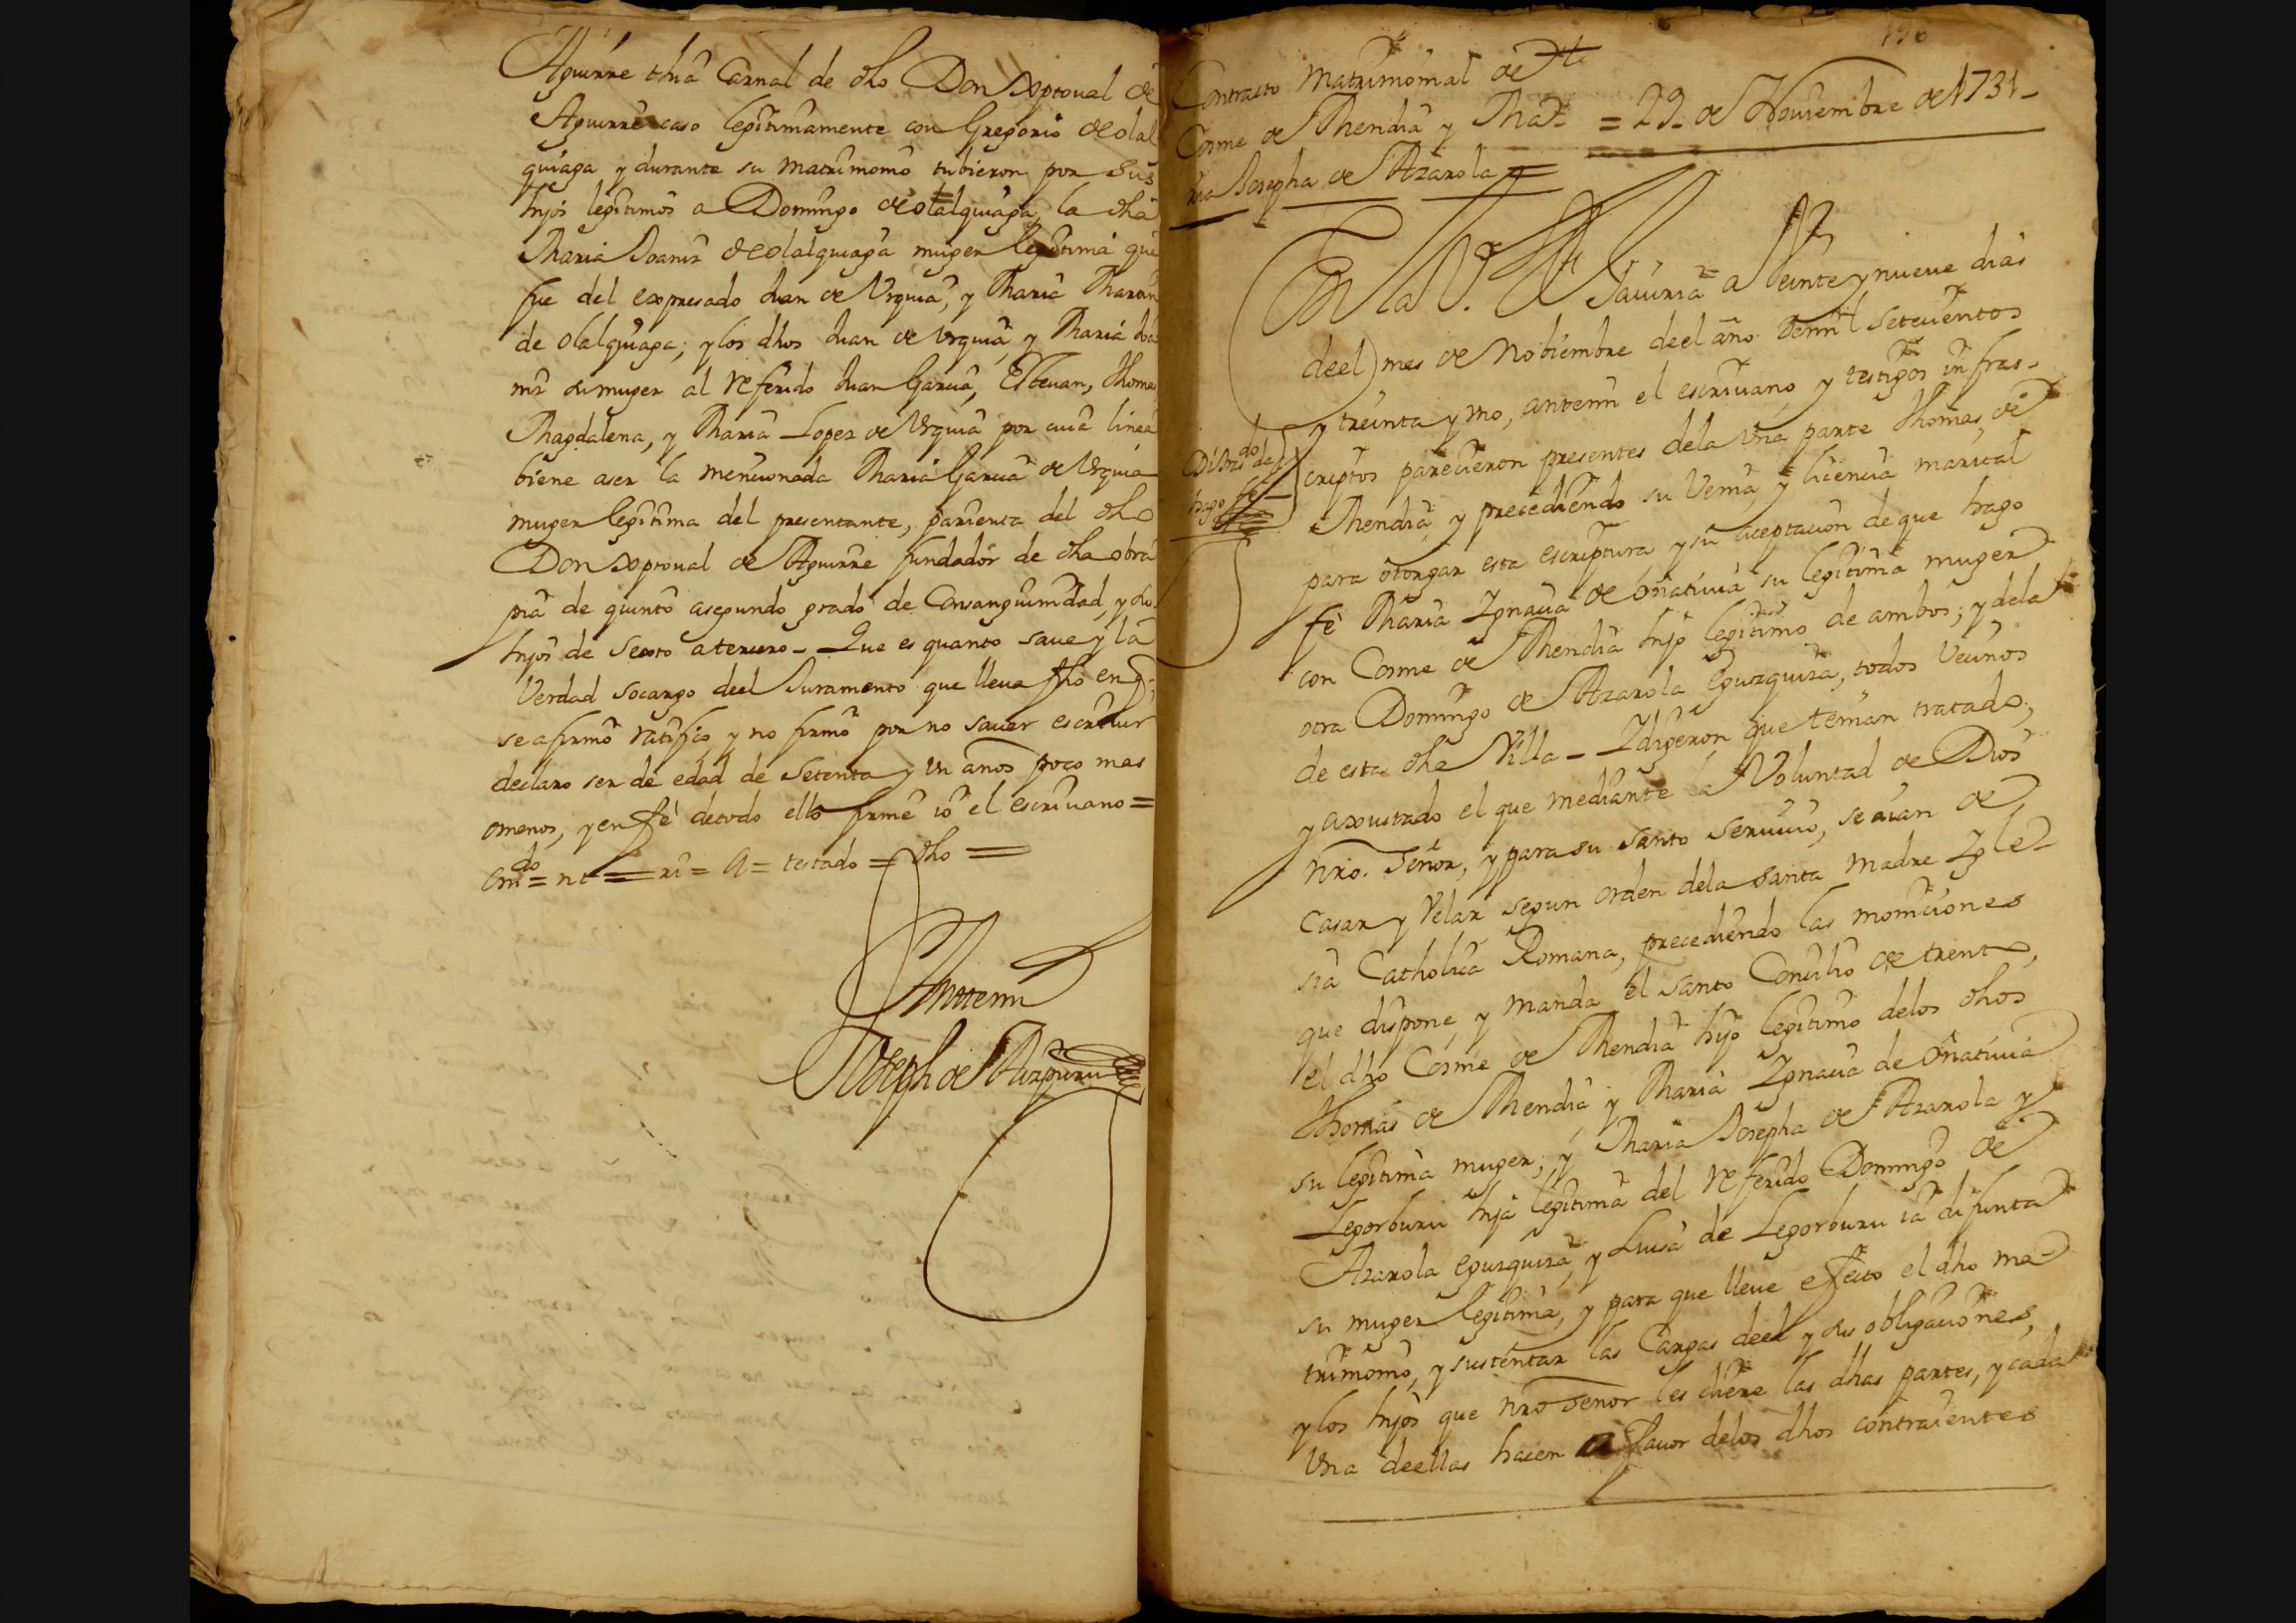 Aguirre thia Carnal de dho Don Xptoual de
Aguirre caso legitimamente con Gregorio de olal
quiaga y durante su matrimonio tubieron por sus
hijos legitimos a Domingo de olalquiaga, la dha
Maria Joaniz de olalquiaga muger legitima que
fue del expresado Juan de Urquia, y Maria Martin
de olalquiaga; y los dhos Juan de Urquia y Maria Joa
niz su muger al referido Juan Garcia, Esteuan, Thomas
Magdalena, y Maria Lopez de Urquia por cuia linea
biene a ser la mencionada Maria Garcia de Urquia
muger legitima del presentante, parienta del dho
Don Xptoual de Aguirre fundador de dha obra
pia de quinto a segundo grado de Consanguinidad, y sus
hijos de Sexto a tercero - Que es quanto saue y la
Verdad socargo deel Juramento que lleua fho en q.
se afirmó ratificó y no firmó por no sauer escriuir
declaro ser de edad de Setenta y un anos poco mas
omenos, y en fé detodo ello firmé io el escriuano =
Em.do = nt = ri = a = testado = dho =
Antemi
Joseph de Aizpuru
196
Contracto Matrimonial de
Cosme de Mendia y Ma = 29 de Nouiembre de 1731 -
ria Josepha de Azarola =
En la V.a de Saluria a Veinte y nueue dias
deel mes de Nobiembre deel año demil Setecientos
y treinta y uno, antemi el escriuano y testigos infras-
criptos parecieron presentes dela una parte Thomas de
Di dos de
hago fe
Mendia, y precediendo su Venia, y licencia marital
para otorgar esta escriptura, y su aceptacion de que hago
fé Maria Ignacia de oñatiuia su legitima muger
con Cosme de Mendia hijo legitimo de ambos; y dela
otra Domingo de Azarola Eguzquiza, todos Vecinos
de esta dha Villa - Y digeron que tenian tratado,
y axustado el que mediante la Voluntad de Dios
nro. Señor, y para su santo seruicio, se aian de
Casar y Velar segun orden dela Santa Madre Igle-
sia Catholica Romana, precediendo las moniciones
que dispone y manda el santo Concilio de trento,
el dho Cosme de Mendia hijo legitimo delos dhos
Thomas de Mendia, y Maria Ignacia de oñatiuia
su legitima muger; y Maria Josepha de Azarola y
Legorburu hija legitima del referido Domingo de
Azarola Eguzquiza, y Luisa de Legorburu ia difunta
su muger legitima, y para que lleue efecto el dho ma-
trimonio, y sustentar las Cargas deel y sus obligaciones,
y los hijos que nro Señor les diere las dhas partes, y cada
una deellas hacen a fauor delos dhos contraientes